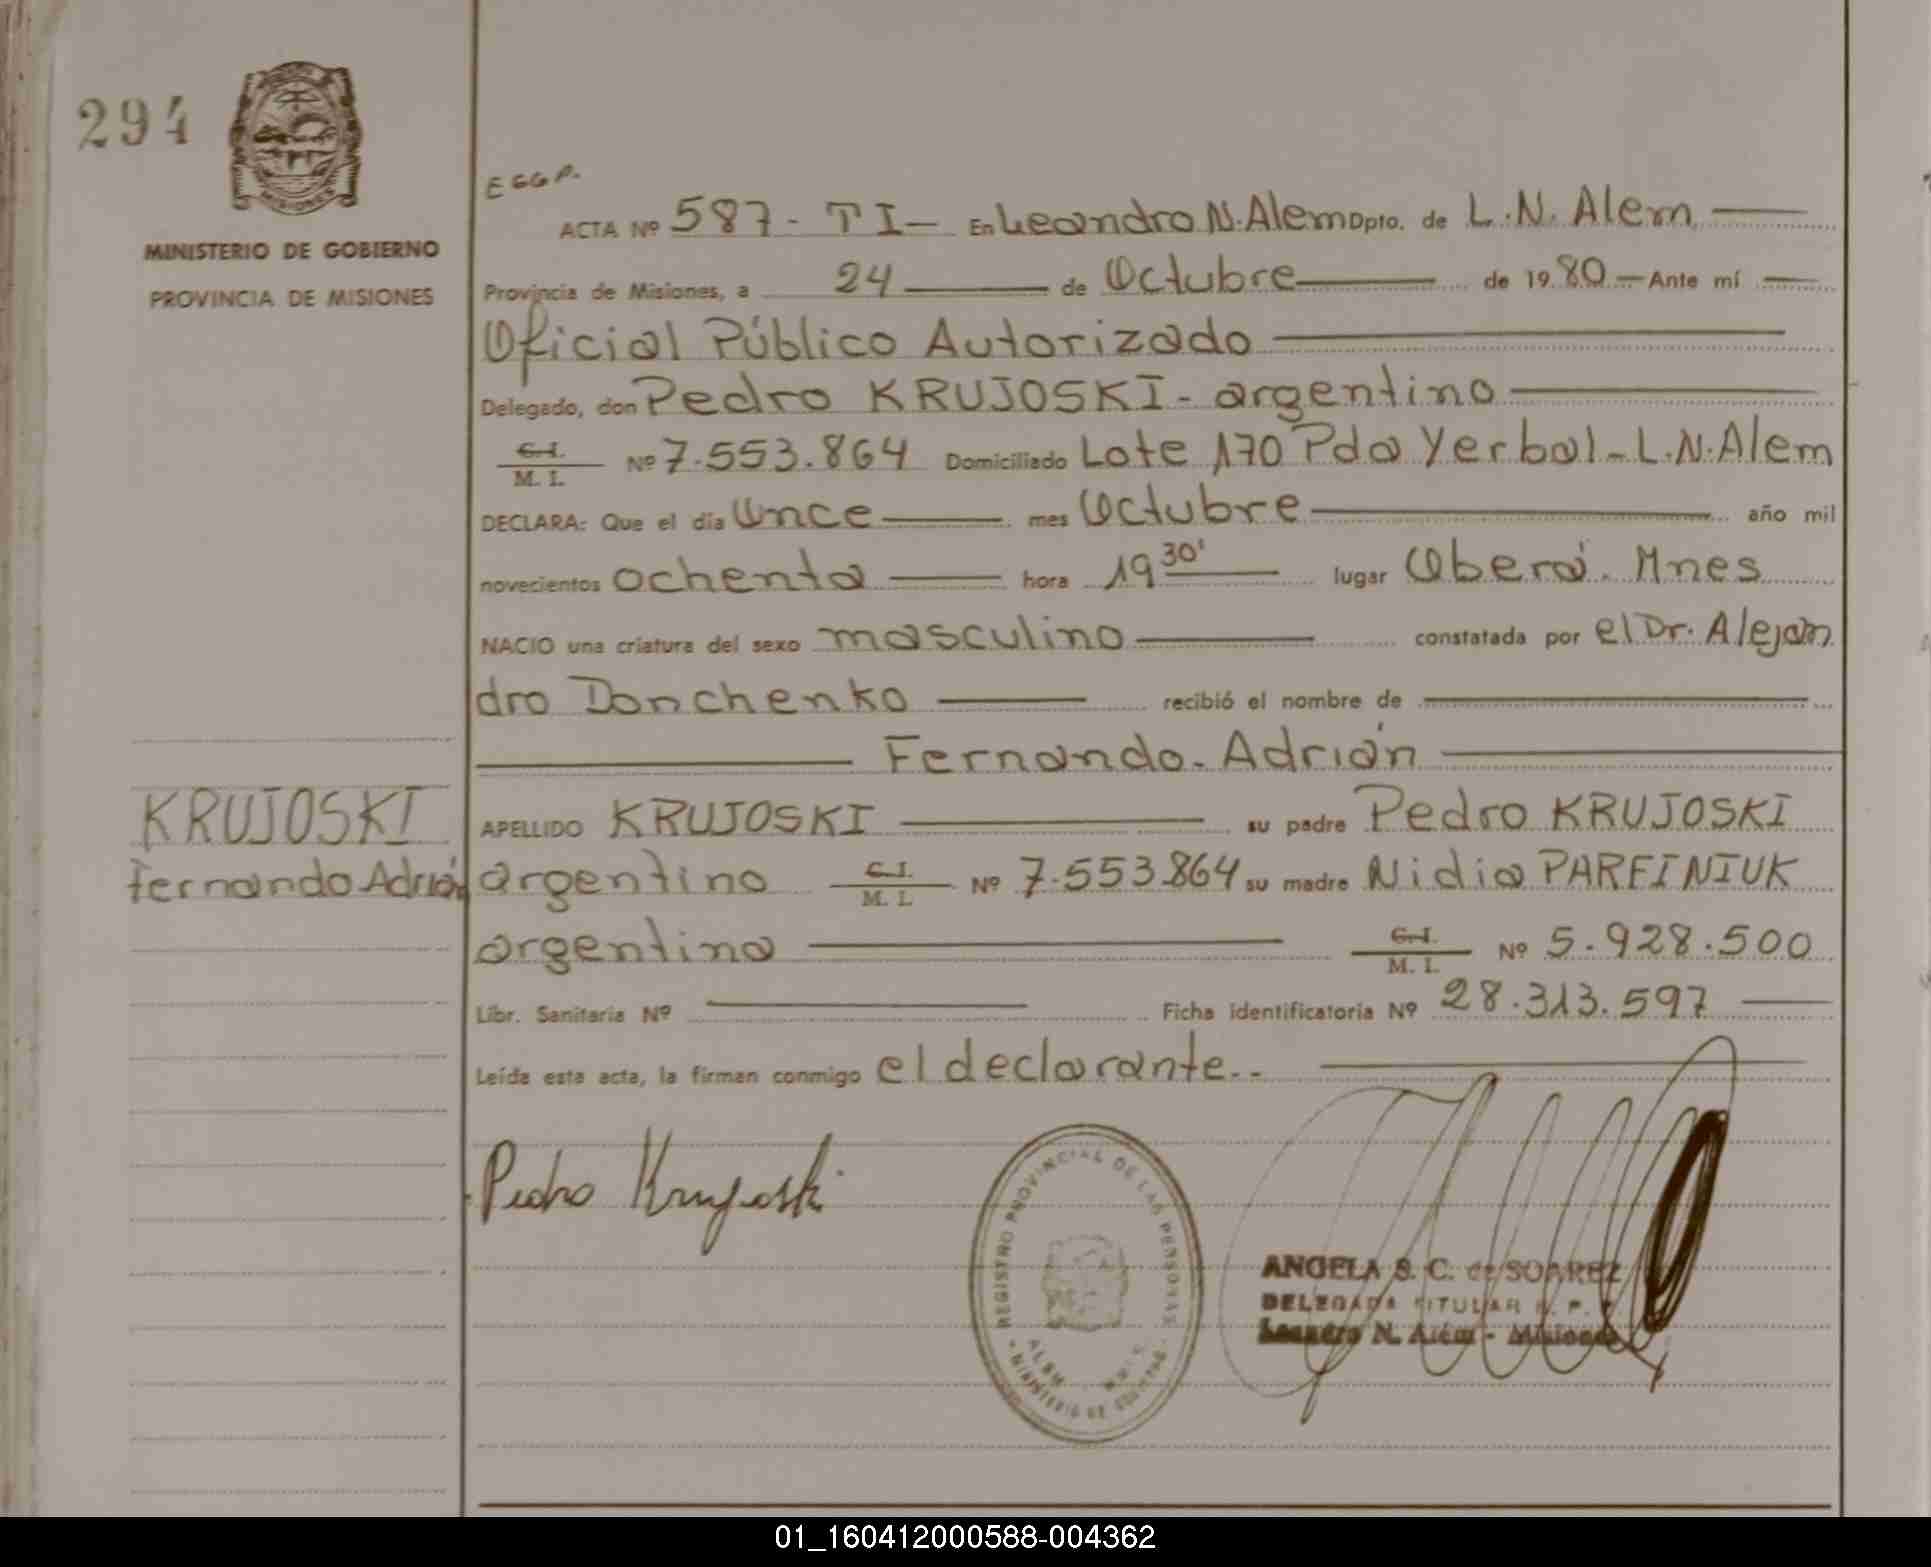 294
MINISTERIO DE GOBIERNO
PROVINCIA DE MISIONES
MISIONES
KRUJOSKI
Fernando Adrián
EGGP.
ACTA Nº 587 - T I - En Leandro N. Alem Dpto. de L. N. Alem
Provincia de Misiones, a 24 de Octubre de 1980 - Ante mí
Oficial Público Autorizado
Delegado, don Pedro KRUJOSKI - argentino
C.I. M. I. Nº 7.553.864 Domiciliado Lote 170 Pda Yerbal - L.N. Alem
DECLARA: Que el día Once mes Octubre año mil
novecientos ochenta hora 19 30' lugar Oberá. Mnes
NACIO una criatura del sexo masculino constatada por el Dr. Alejan
dro Donchenko recibió el nombre de
Fernando. Adrián
APELLIDO KRUJOSKI su padre Pedro KRUJOSKI
argentino C.I. M. I. Nº 7.553.864 su madre Nidia PARFINIUK
argentina C.I. M. I. Nº 5.928.500
Libr. Sanitaria Nº Ficha identificatoria Nº 28.313.597
Leída esta acta, la firman conmigo el declarante..
Pedro Krujoski
REGISTRO PROVINCIAL DE LAS PERSONAS
ALEM
MINISTERIO DE GOBIERNO
ANGELA S. C. de SOAREZ
DELEGADA TITULAR R. P.
Leandro N. Alem - Misiones
01_160412000588-004362